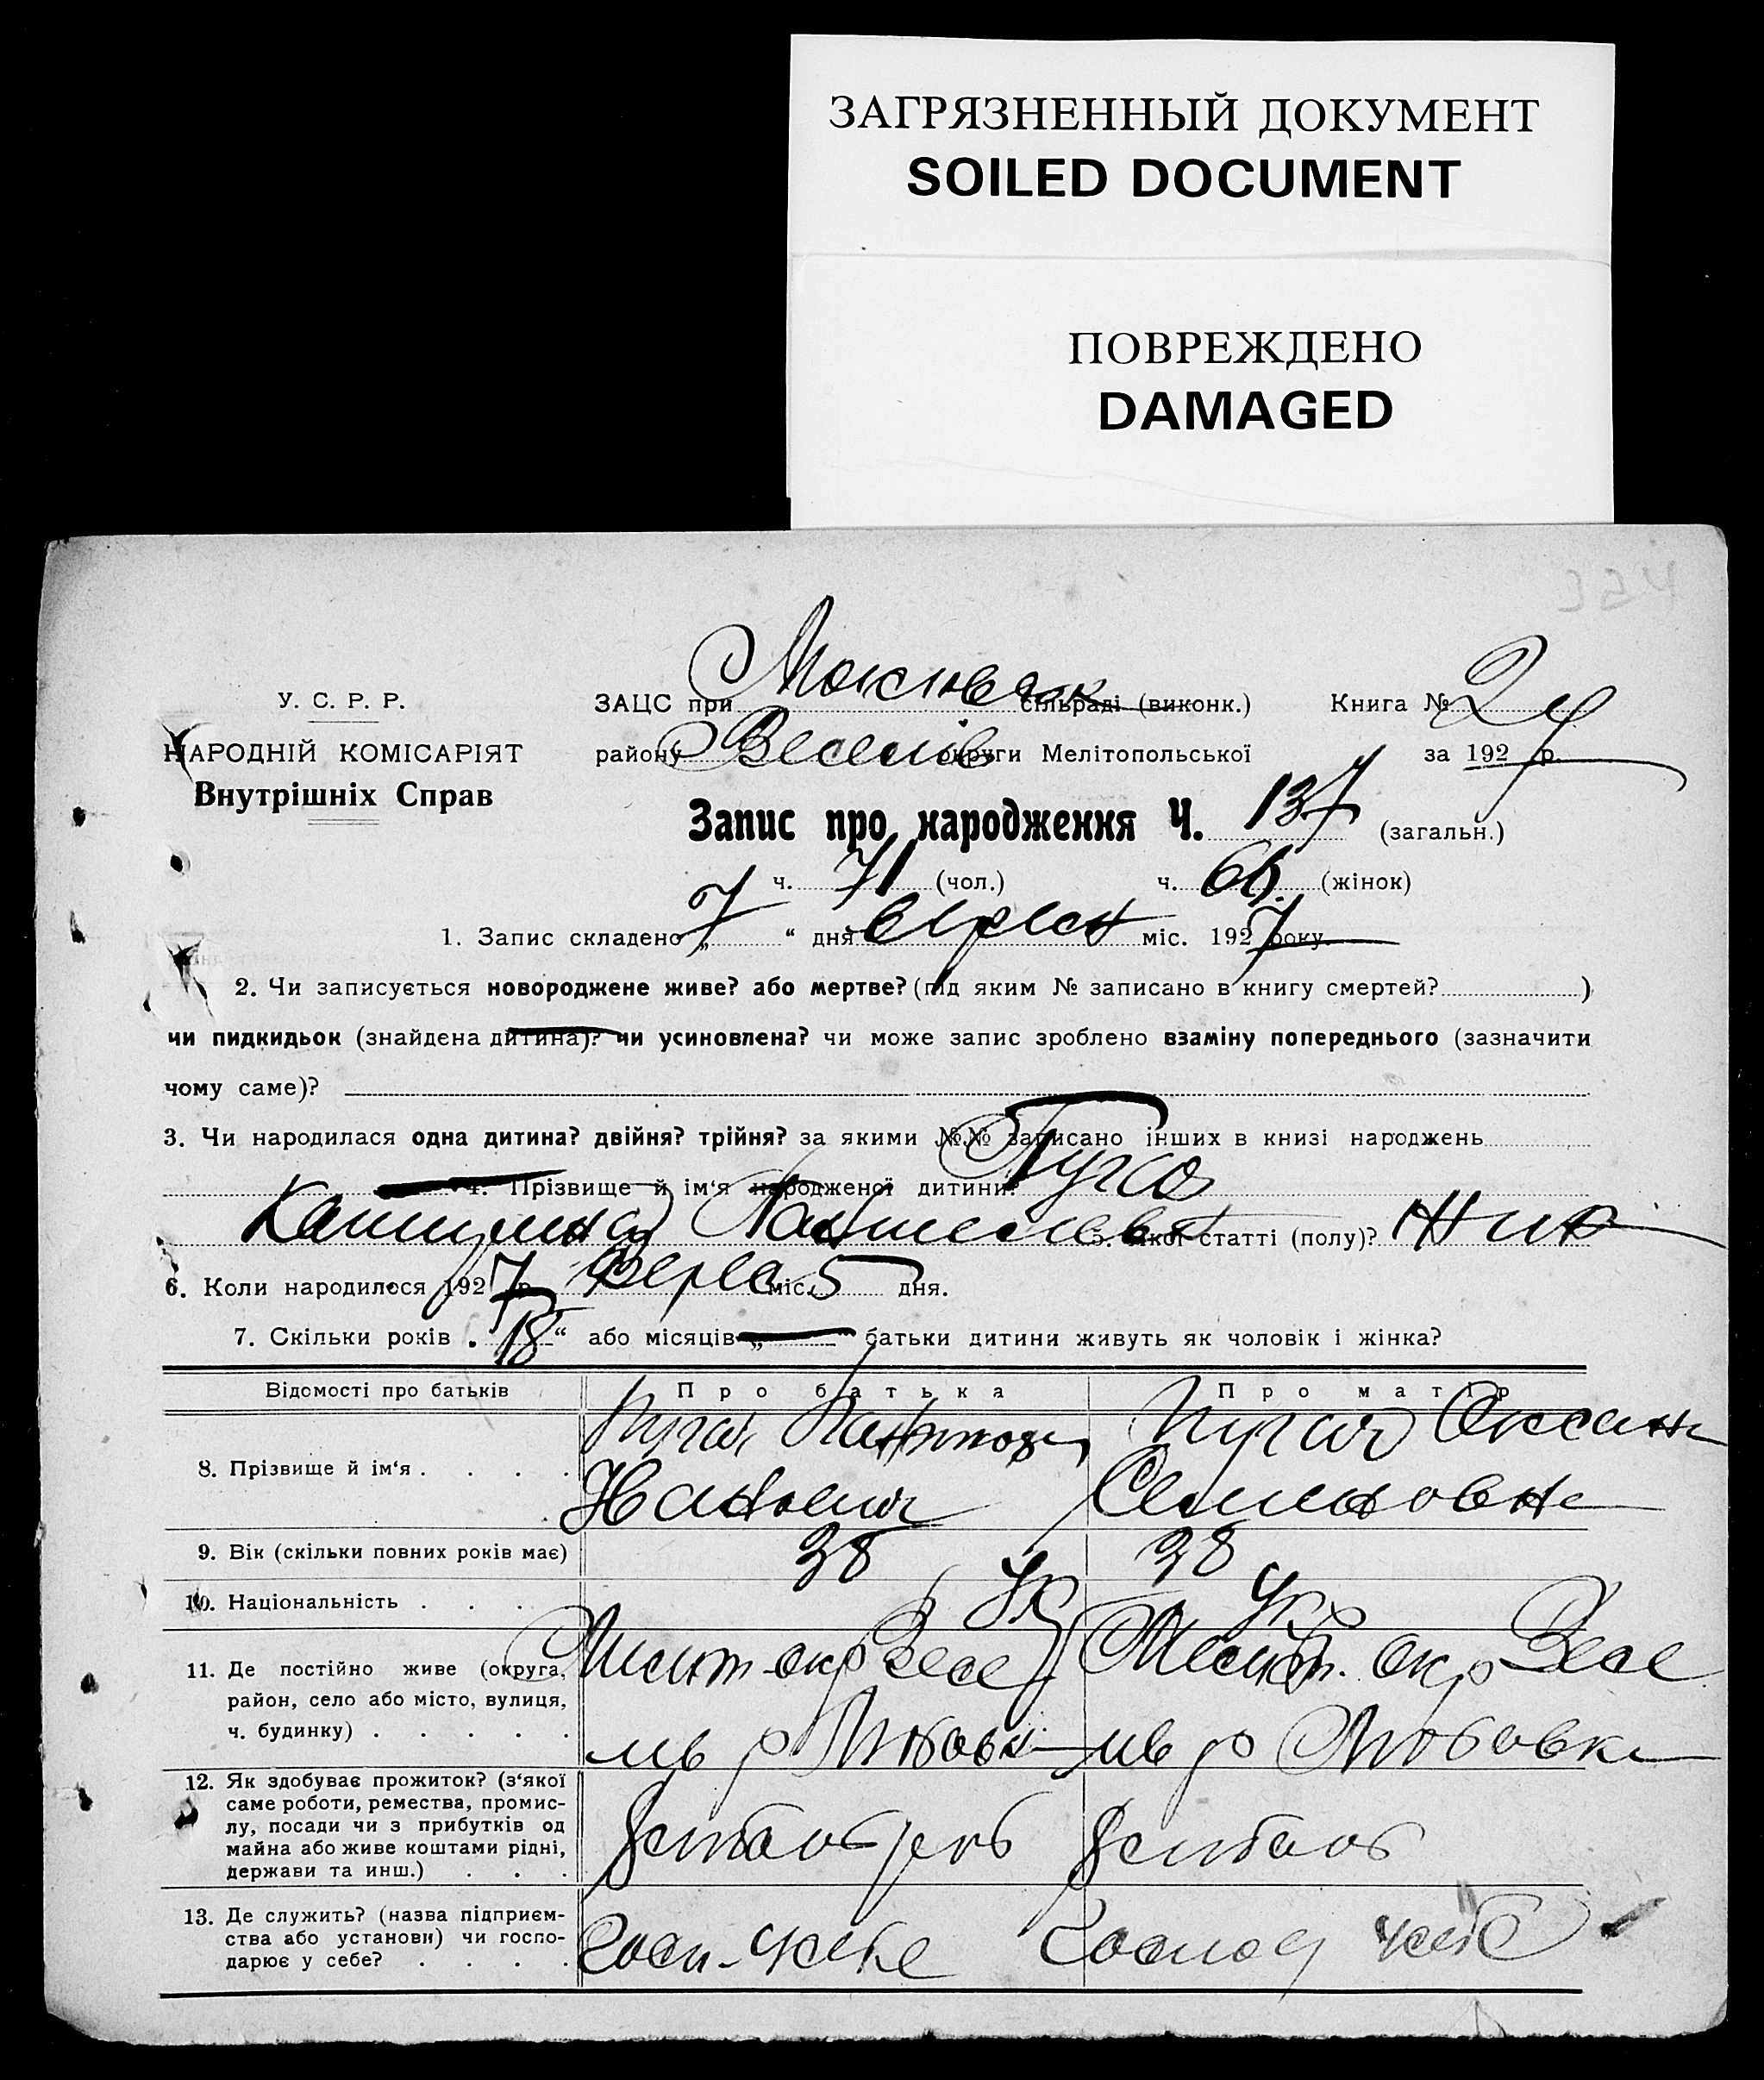 ЗАГРЯЗНЕННЫЙ ДОКУМЕНТ
SOILED DOCUMENT
ПОВРЕЖДЕНО
DAMAGED
324
У. С. Р. Р.
НАРОДНІЙ КОМІСАРІЯТ
Внутрішніх Справ
ЗАЦС при сільраді (виконк.) Книга № 2
району Веселів округи Мелітопольської за 1927 р.
Запис про народження Ч. 137 (загальн.)
ч. 71 (чол.) ч. 66 (жінок)
1. Запис складено „ 7 “ дня вересн міс. 1927 року
2. Чи записується новороджене живе? або мертве? (під яким № записано в книгу смертей? )
чи пидкидьок (знайдена дитина)? чи усиновлена? чи може запис зроблено взаміну попереднього (зазначити
чому саме)?
3. Чи народилася одна дитина? двійня? трійня? за якими №№ записано інших в книзі народжень
4. Прізвище й ім‘я народженої дитини? Пугач
5. Якої статті (полу)? Жин
6. Коли народилося 1927 р. Верес міс. 5 дня.
7. Скільки років „ 18 “ або місяців „ — “ батьки дитини живуть як чоловік і жінка?
Відомості про батьків Про батька Про матір
8. Прізвище й ім‘я . . . . Пугач Пугач Оксана
Семеновна
9. Вік (скільки повних років має) 38 38
10. Національність . . . Ук Укр
11. Де постійно живе (округа, Мелит. окр Весе Мелит. окр Весе
район, село або місто, вулиця,
ч. будинку) . . . . . лів р лів р
12. Як здобуває прожиток? (з‘якої
саме роботи, ремества, промис-
лу, посади чи з прибутків од
майна або живе коштами рідні,
держави та инш.) . . . хлібороб
13. Де служить? (назва підприєм-
ства або установи) чи госпо-
дарює у себе? . . . . Госп. у себе Господ у себе